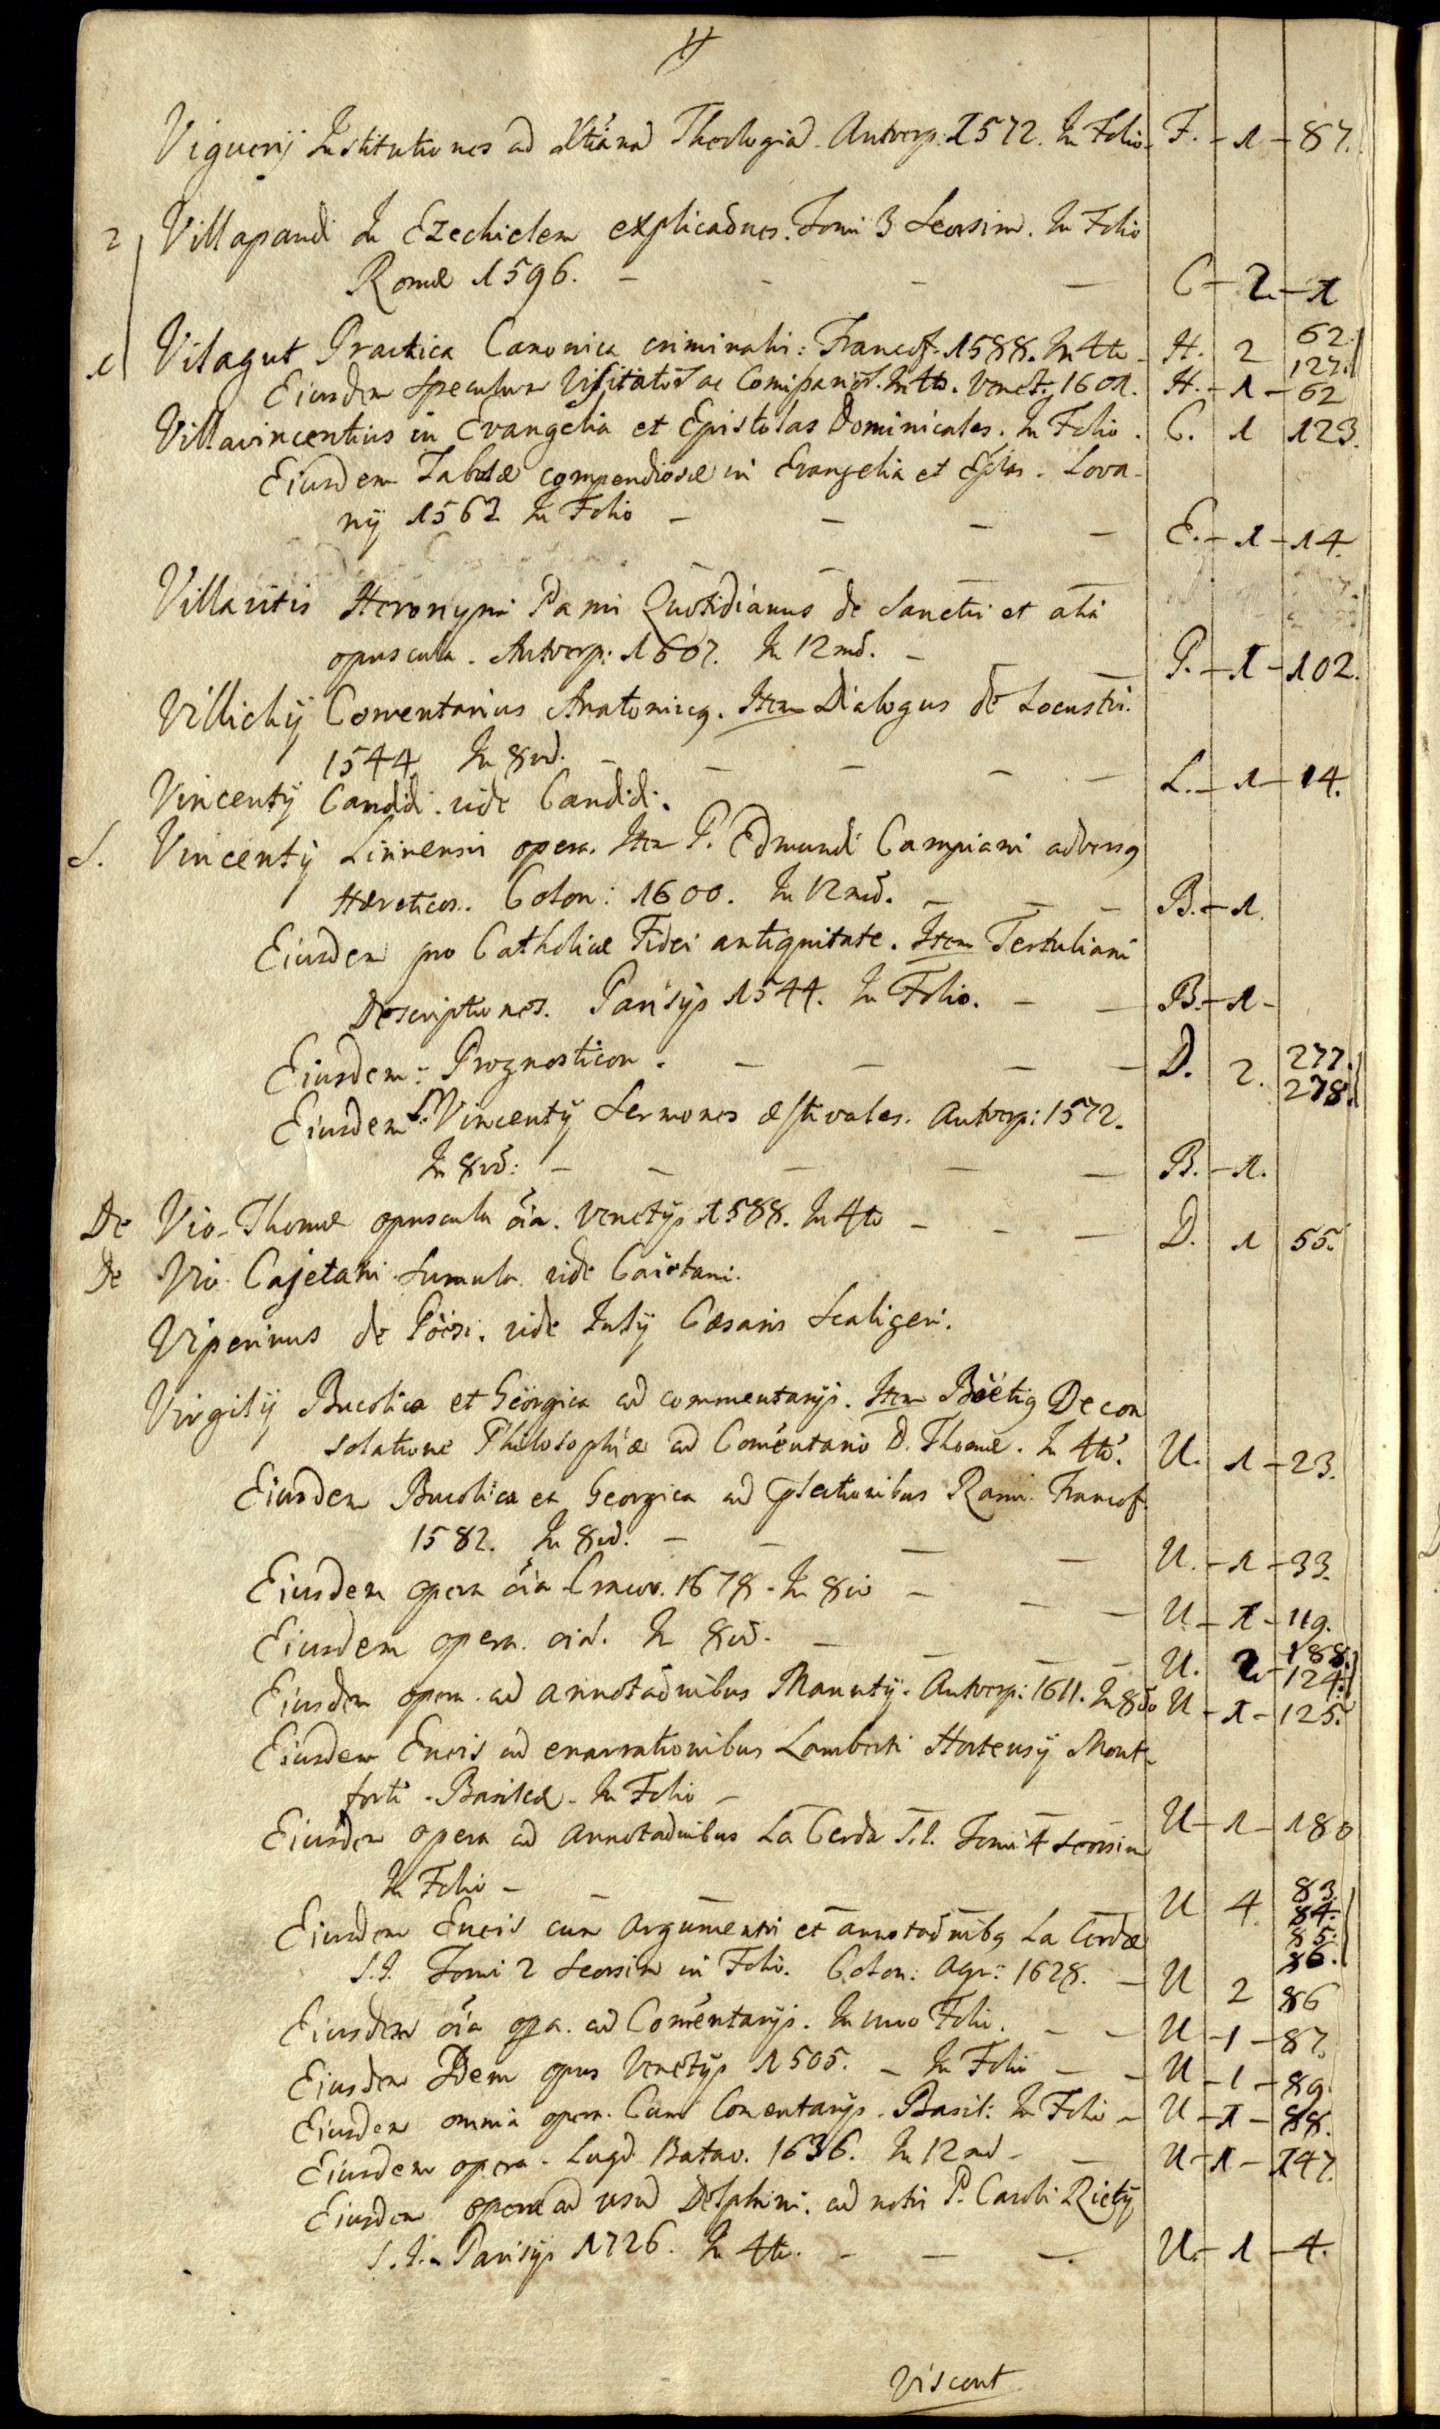 Viguerij Institutiones ad Xtiana Theologia. Antverp: 1572. In Folio. F. - 1 - 87.
2 Villapandi In Ezechielem explicaōnes. Tomi 3 Seorsim. In Folio
Romæ 1596. - - - - C - 2 - 1
1 Vilagut Practica Canonica criminalis: Francof. 1588. In 4to - H. 2 62. 127.
Eiusdem Speculum Visitatōr ac In 4to. Venet: 1601. H. - 1 - 62
Villavincentius in Evangelia et Epistolas Dominicales. In Folio. C. 1 123.
Eiusdem Tabulæ compendiosæ in Evangelia et Eplas. Lova-
nij 1562 In Folio - - - - E. - 1 - 14.
Villavitis Heronymi Pa mi Quotidianus de Sanctis et alia
opuscula. Antverp: 1607. In 12mo. - - P. - 1 - 102.
Villichij Comentarius Anatomicq. Item Dialogus de Locustis.
1544 In 8vo. - - - - - L. - 1 - 14.
Vincentij Candidi. vide Candidi.
S. Vincentij Lirinensis opera. Item P. Edmundi Campiani adversq
Hæreticos. Colon: 1600. In 12mo. - - - B. - 1.
Eiusdem pro Catholicæ Fidei antiquitate. Item Tertuliani
Descriptiones. Parisijs 1544. In Folio. - - B. - 1 -
Eiusdem: Prognosticon. - - - - D. 2. 277. 278.
Eiusdem S. Vincentij Sermones æstivales. Antverp: 1572.
In 8vo: - - - - - B. - 1.
De Vio. Thomæ opuscula oīa. Venetijs 1588. In 4to - - - D. 1 55.
De Vio. Cajetani Sumula vide Caietani.
Viperinus de Poësi. vide Julij Cæsaris Scaligeri.
Virgilij Bucolica et Georgica cū commentarijs. Item Boëtiq De con
solatione Philosophiæ cū Comentario D. Thomæ. In 4to. U. 1 - 23.
Eiusdem Bucolica et Georgica cū plectionibus Rami. Francof.
1582. In 8vo. - - - - U. - 1 - 33.
Eiusdem opera oīa Cracov. 1678. In 8vo - - - U. - 1 - 119.
Eiusdem opera oīa. In 8vo. - - - - U. 2 - 188. 124.
Eiusdem opera cū annotaōnibus Manutij. Antverp: 1611. In 8vo U - 1 - 125.
Eiusdem Eneis cū enarrationibus Lamberti Hortensij Mont-
forti. Basileæ. In Folio - U - 1 - 180
Eiusdem opera cū annotaōnibus La Cerda S.I. Tomi 4 seorsim
In Folio - U 4. 83. 84. 85. 86.
Eiusdem Eneis cum argumentis et annotaōnibq La Cerdæ
S.I. Tomi 2 Seorsim in Folio. Colon: Agr: 1628. - U 2 86
Eiusdem oīa opa. cū Comentarijs. In uno Folio. - - U - 1 - 87.
Eiusdem Idem opus Venetijs 1505. - In Folio - - U - 1 - 89.
Eiusdem omnia opera. Cum Comentarijs. Basil: In Folio - U - 1 - 88.
Eiusdem opera. Lugd. Batav. 1636. In 12mo - - U - 1 - 147.
Eiusdem opera ad usū Delphini. cū notis P. Caroli Ruæij
S.I. Parisijs 1726. In 4to. - - - U. - 1 - 4.
Viscont